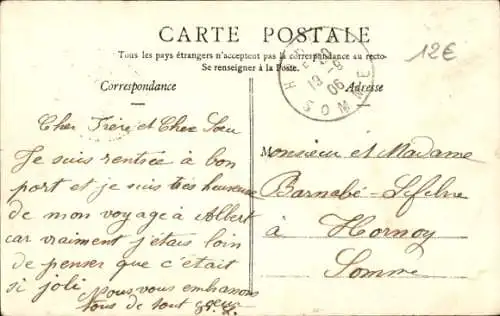 CARTE POSTALE
Tous les pays étrangers n'acceptent pas la correspondance au recto-
Se renseigner à la Poste.
12€
19-9
06
SOMME
Correspondance
Adresse
Cher Frère et Cher Sœu
Je suis rentrée à bon
port et je suis très heureuse
de mon voyage à Albert
car vraiment j'étais loin
de penser que c'était
si joli. Nous vous embrassons
tous de tout cœur
Monsieur et Madame
Barnabé-Lefebvre
à Hornoy
Somme